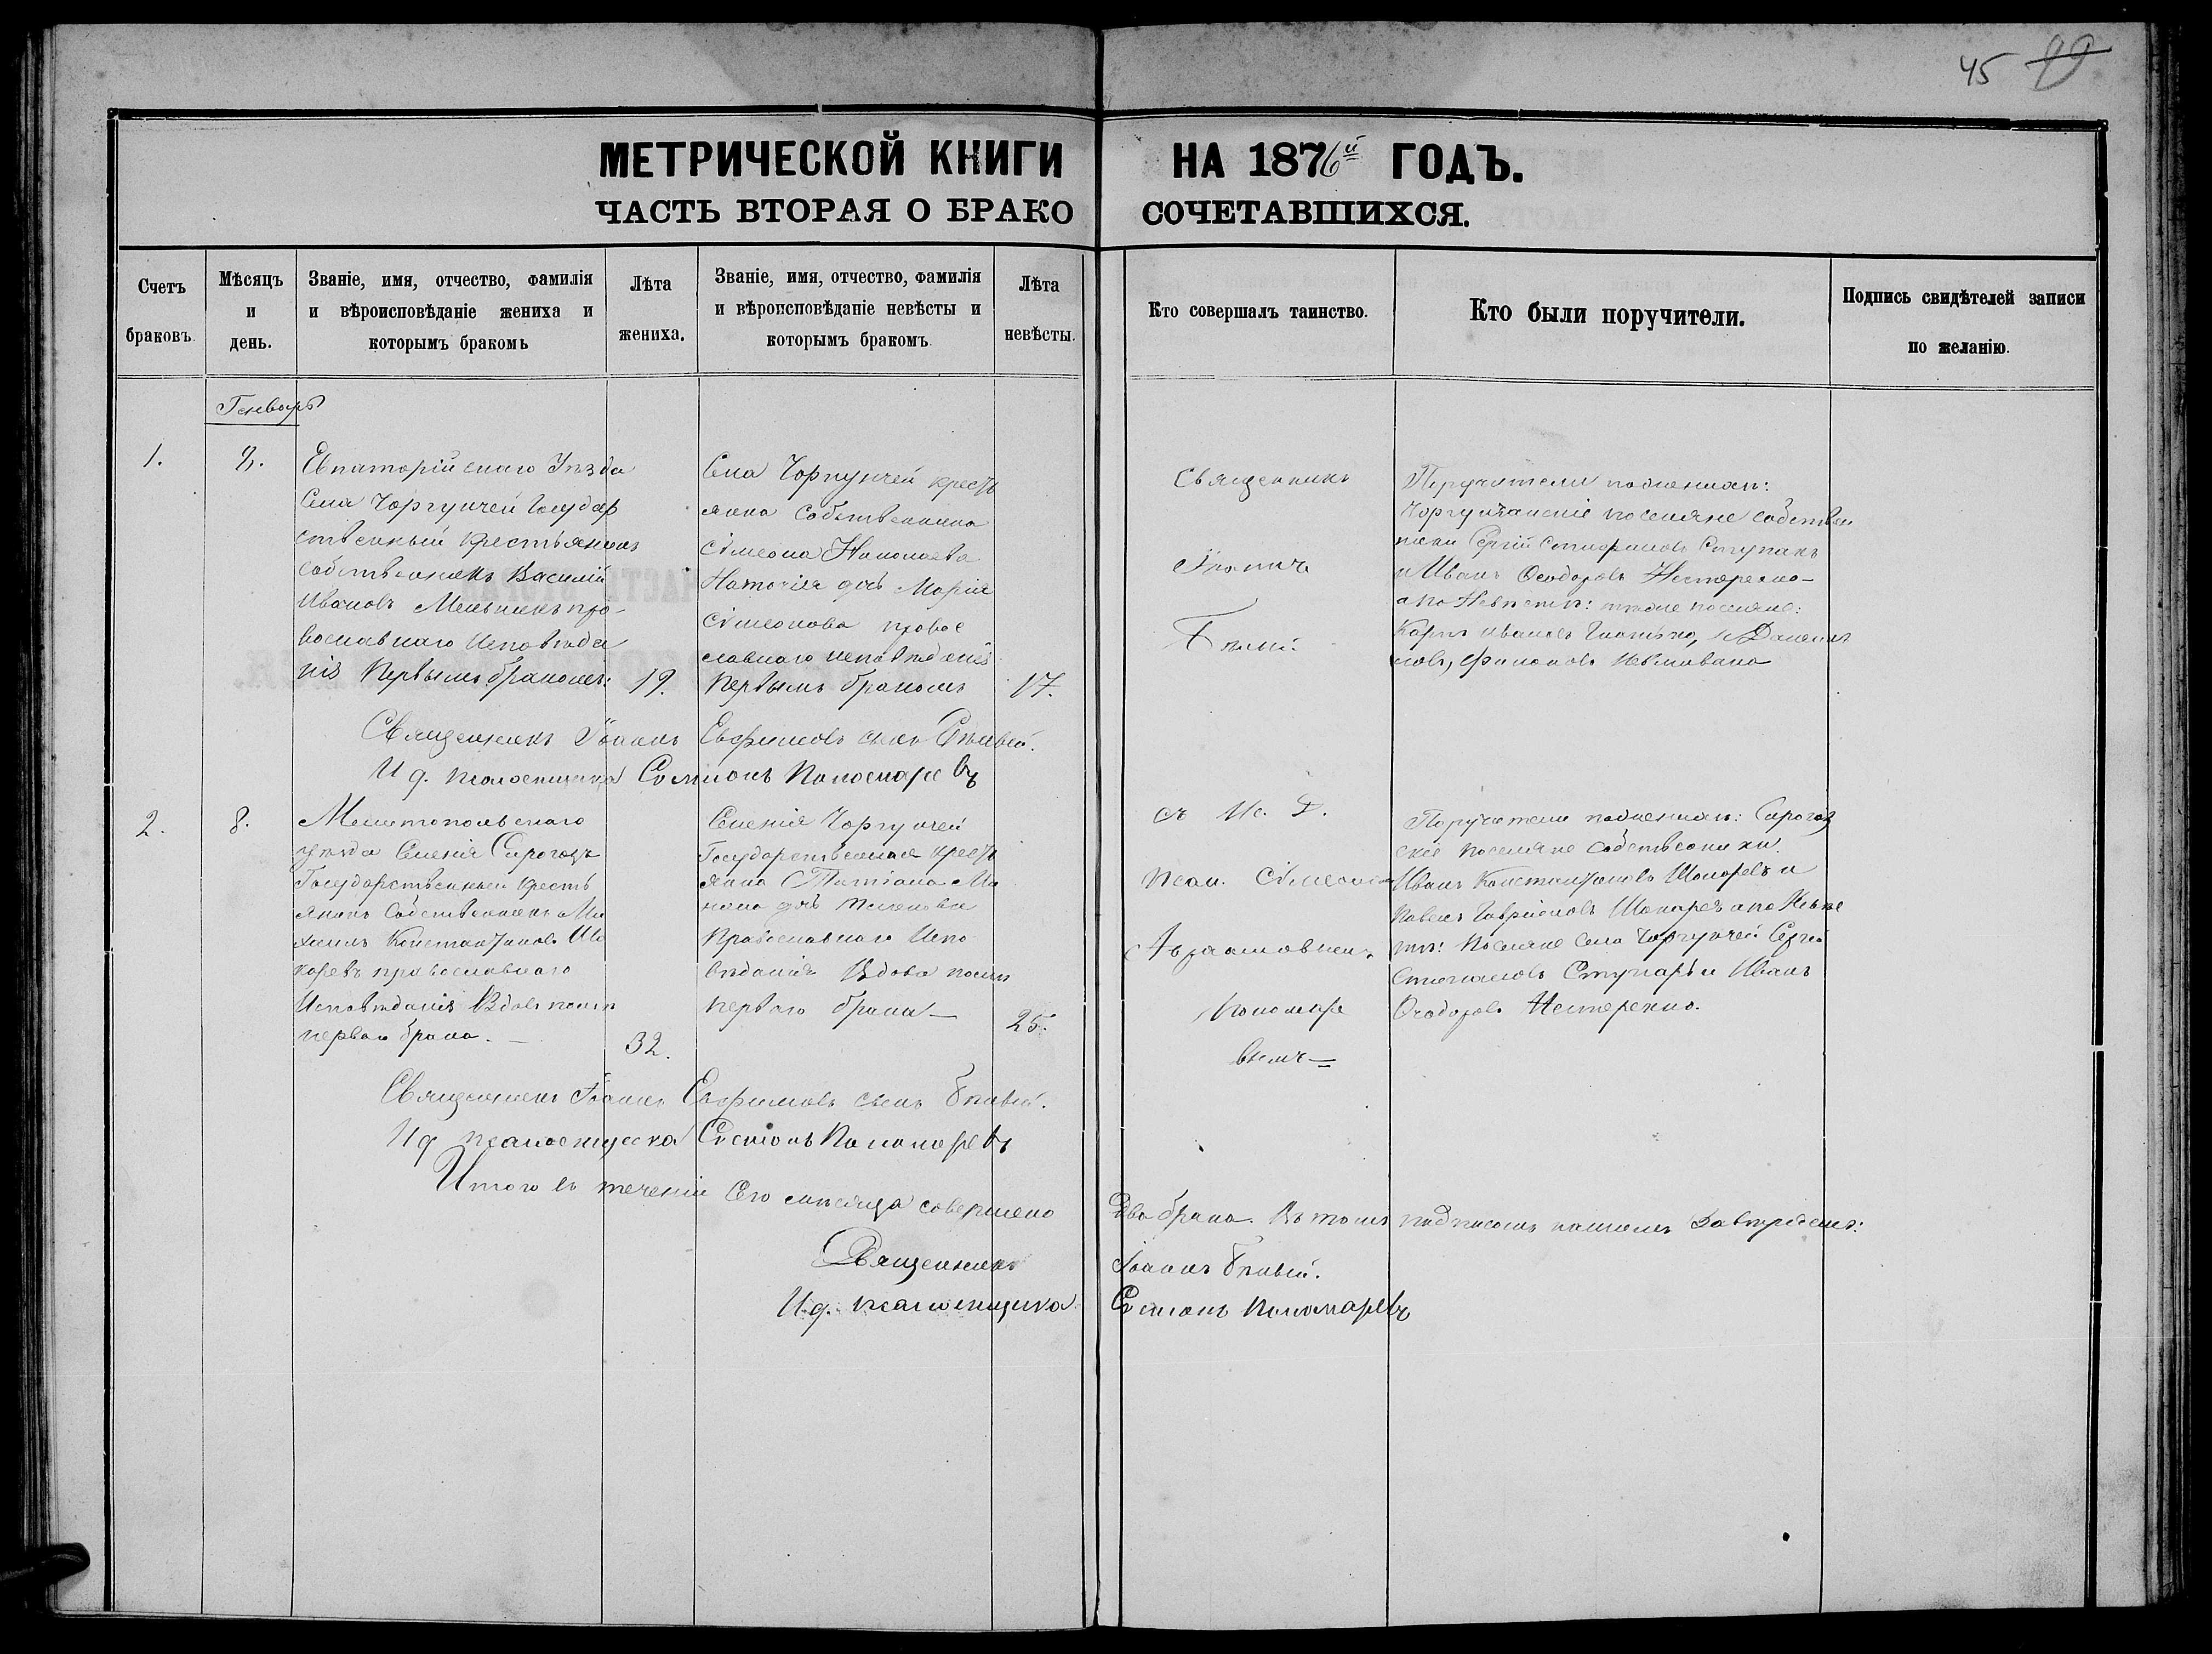 45 99
МЕТРИЧЕСКОЙ КНИГИ НА 1876й ГОДЪ.
ЧАСТЬ ВТОРАЯ О БРАКОСОЧЕТАВШИХСЯ.
Счетъ браковъ.
Мѣсяцъ и день.
Званіе, имя, отчество, фамилія
и вѣроисповѣданіе жениха и
которымъ бракомъ
Лѣта жениха.
Званіе, имя, отчество, фамилія
и вѣроисповѣданіе невѣсты и
которымъ бракомъ.
Лѣта невѣсты.
Кто совершалъ таинство.
Кто были поручители.
Подпись свидѣтелей записи
по желанію.
Генварь
1.
8.
Евпаторійскаго Уѣзда
Села Чоргунчей Государ
ственный крестьянинъ
собственникъ Василій
Ивановъ Мельникъ пра-
вославнаго Исповѣда
нія Первымъ бракомъ:
19.
Села Чоргунчей крест
янка собственника
Сѵмеона Николаева
дочь Марія
Сѵмеонова правос
лавнаго исповѣданія
первымъ бракомъ
17.
Священникъ
Іоаннъ
Поручители по женихѣ:
Чоргунчанскіе поселяне собствен
ники Сергій Ступакъ
и Иванъ Ѳеодоровъ Нестеренко-
а по Невѣстѣ: тѣже поселяне:
Карпъ Ивановъ
Священникъ Іоаннъ Евфимовъ сынъ
И д. псаломщика Сѵмеонъ Пономаревъ
2.
8.
Мелитопольскаго
уѣзда Селенія Сирогозъ
Государственный кресть
янинъ Собственникъ Ми
хаилъ Константиновъ Шо
каревъ православнаго
Исповѣданія Вдовъ послѣ
перваго брака.
32.
Селенія Чоргунчей
Государственная крест
янка Татіана
дочь
Православнаго Испо
вѣданія Вдова послѣ
перваго брака
25.
съ Ис. Д.
псал. Сѵмеономъ
Пономаре
вымъ
Поручители по женихѣ: Сирогоз
скіе поселяне Собственники
Иванъ Константиновъ Шокаревъ и
Павелъ Гавріиловъ Шокаревъ а по Невѣс
тѣ: Поселяне села Чоргунчей Сергей
Ступаръ и Иванъ
Ѳеодоровъ Нестеренко.
Священникъ Іоаннъ Евфимовъ сынъ
И д псаломщика Сѵмеонъ Пономаревъ
Итого въ теченіи Сего мѣсяца совершено Два брака. Въ томъ подписомъ нашимъ Завѣряемъ:
Священникъ Іоаннъ
И д. псаломщика Сѵмеонъ Пономаревъ